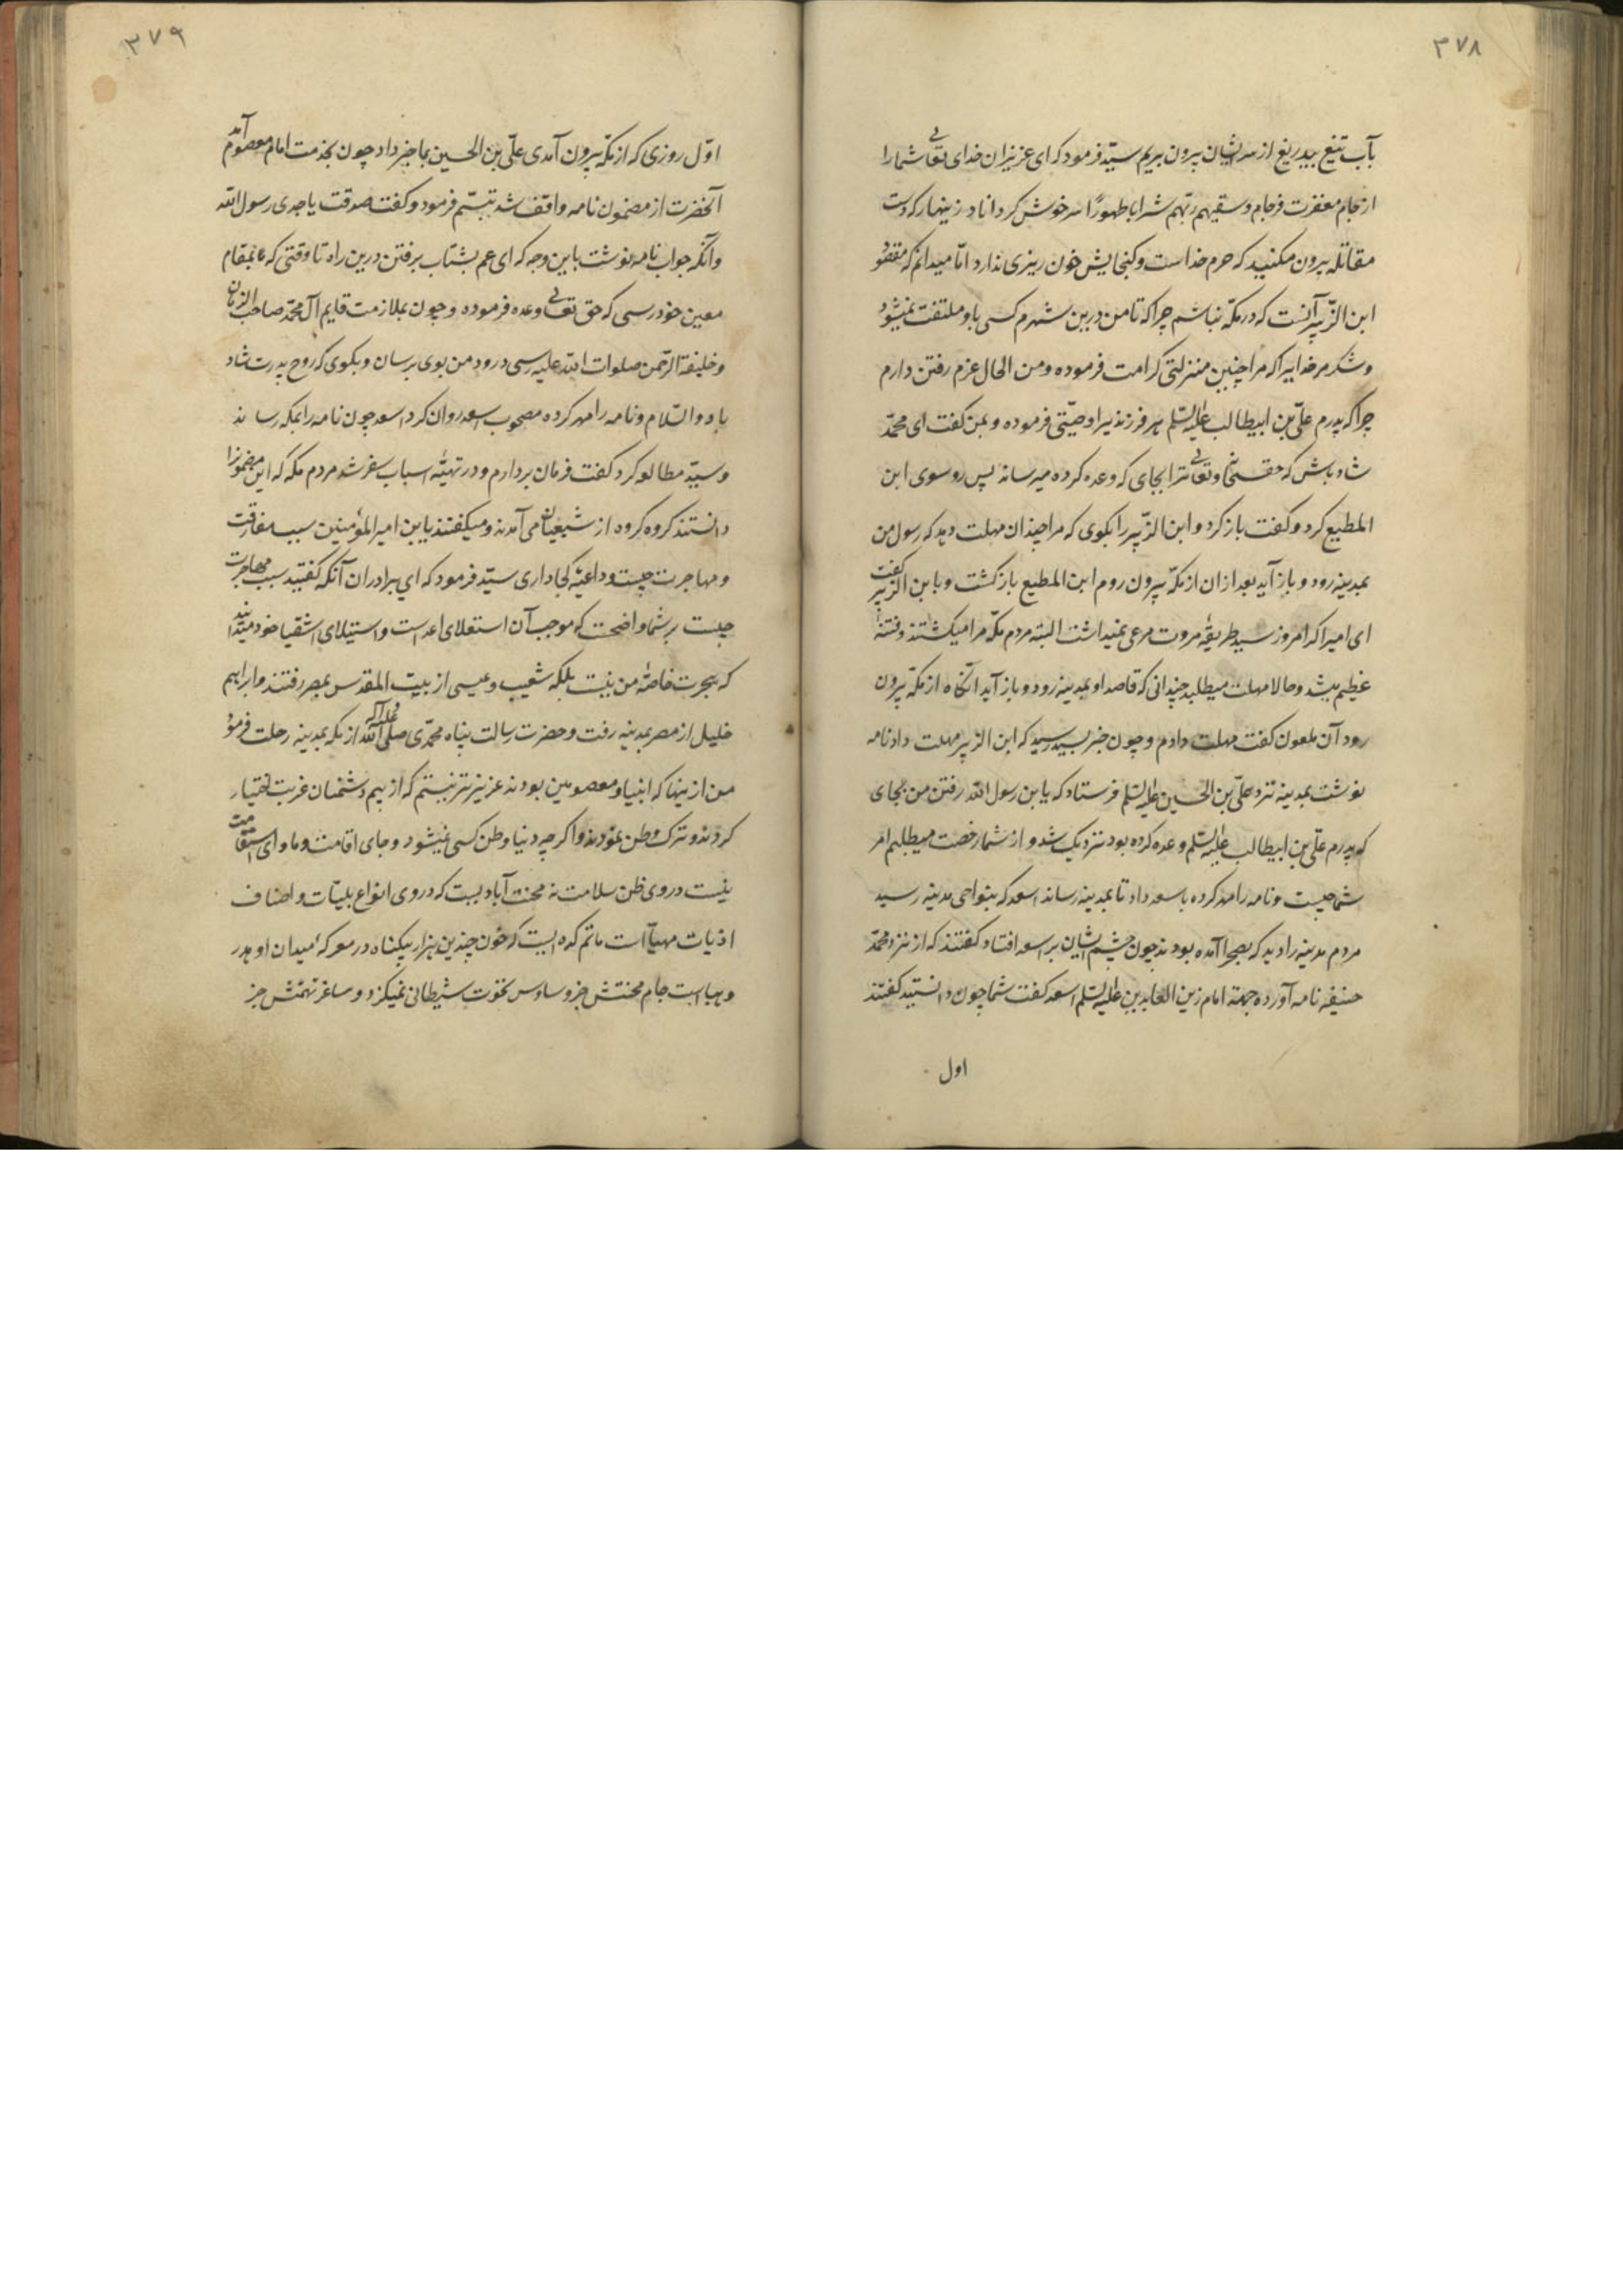 ۳۷۸
بآب تیغ بیدریغ از سر ایشان بیرون بریم سیّد فرمود که ای عزیزان خدای تعالی شما را
از جام مغفرت فرجام وسقیهم ربّهم شرابا طهورًا سرخوش کرداناد زینهار که دست
مقاتله بیرون مکنید که حرم خداست و کنجایش خون ریزی ندارد امّا میدانم که مقصود
ابن الزّبیر آنست که در مکّه نباشم چرا که تا من درین شهرم کسی باو ملتفت نمیشود
و شکر مر خدایرا که مرا چنین منزلتی کرامت فرموده و من الحال عزم رفتن دارم
چرا که پدرم علیّ بن ابیطالب علیه السّلم هر فرزندیرا وصیّتی فرموده و بمن کفت ای محمّد
شاد باش که حقسبحانه و تعالی ترا بجای که وعده کرده میرساند پس رو سوی ابن
المطیع کرد و کفت باز کرد و ابن الزّبیر را بکوی که مرا چندان مهلت دهد که رسول من
بمدینه رود و باز آید بعد ازان از مکّه بیرون روم ابن المطیع باز کشت و با ابن الزبیر کفت
ای امیر اکر امروز سید طریقهٔ مروت مرعی نمیداشت البته مردم مکّه مرا میکشتند و فتنهٔ
عظیم میشد و حالا مهلت میطلبد چندانی که قاصد او بمدینه رود و باز آید آنکاه از مکّه بیرون
رود آن ملعون کفت مهلت دادم و چون خبر بسید رسید که ابن الزبیر مهلت داد نامه
نوشت بمدینه نزد علیّ بن الحسین علیه السّلم فرستاد که یا بن رسول اللّه رفتن من بجای
که پدرم علیّ بن ابیطالب علیه السّلم وعده کرده بود نزدیک شد و از شما رخصت میطلبم امر
شما چیست و نامه را مهر کرده باسعد داد تا بمدینه رساند اسعد که بنواحی مدینه رسید
مردم مدینه را دید که بصحرا آمده بودند چون چشم ایشان بر اسعد افتاد کفتند که از نزد محمّد
حنیفه نامه آورده جهة امام زین العابدین علیه السّلم اسعد کفت شما چون دانستید کفتند
اول
۳۷۹
اوّل روزی که از مکّه بیرون آمدی علیّ بن الحسین بما خبر داد چون بخدمت امام معصوم آمد
آنحضرت از مضمون نامه واقف شد تبسّم فرمود و کفت صدقت یا جدی رسول اللّه
وانکه جواب نامه نوشت باین وجه که ای عم بشتاب برفتن درین راه تا وقتی که بمقام
معین خود رسی که حق تعالی وعده فرموده و چون بملازمت قایم آل محمّد صاحب الزمان
و خلیفة الرّحمن صلوات اللّه علیه رسی درود من بوی برسان و بکوی که روح پدرت شاد
باد و السّلام و نامه را مهر کرده مصحوب اسعد روان کرد اسعد چون نامه را بمکه رساند
و سیّد مطالعه کرد کفت فرمان بردارم و در تهیّهٔ اسباب سفر شد مردم مکه که این مضمونرا
دانستند کروه کروه از شیعیان می آمدند و میکفتند یا بن امیر المؤمنین سبب مفارقت
و مهاجرت چیست و داعیّهٔ کجا داری سیّد فرمود که ای برادران آنکه کفتید سبب مهاجرت
چیست بر شما واضحست که موجب آن استعلای اعداست و استیلای اشقیا خود میدانید
که هجرت خاصهٔ من نیست بلکه شعیب و عیسی از بیت المقدس بمصر رفتند و ابراهیم
خلیل از مصر بمدینه رفت و حضرت رسالت پناه محمّدی صلی اللّه علیه و آله از مکه بمدینه رحلت فرمود
من ازینها که انبیا و معصومین بودند عزیزتر نیستم که از بیم دشمنان غربت اختیار
کردند و ترک وطن نمودند و اکر چه دنیا وطن کسی نمیشود و جای اقامت و ماوای استقامت
نیست در وی ظن سلامت نه محنت آباد یست که در وی انواع بلیّات و اصناف
اذیات مهیّا است ماتم کده ایست که خون چندین هزار بیکناه در معرکهٔ میدان او هدر
و هباست جام محنتش جز وساوس نخوت شیطانی نمیکزد و ساغر تهمتش جز